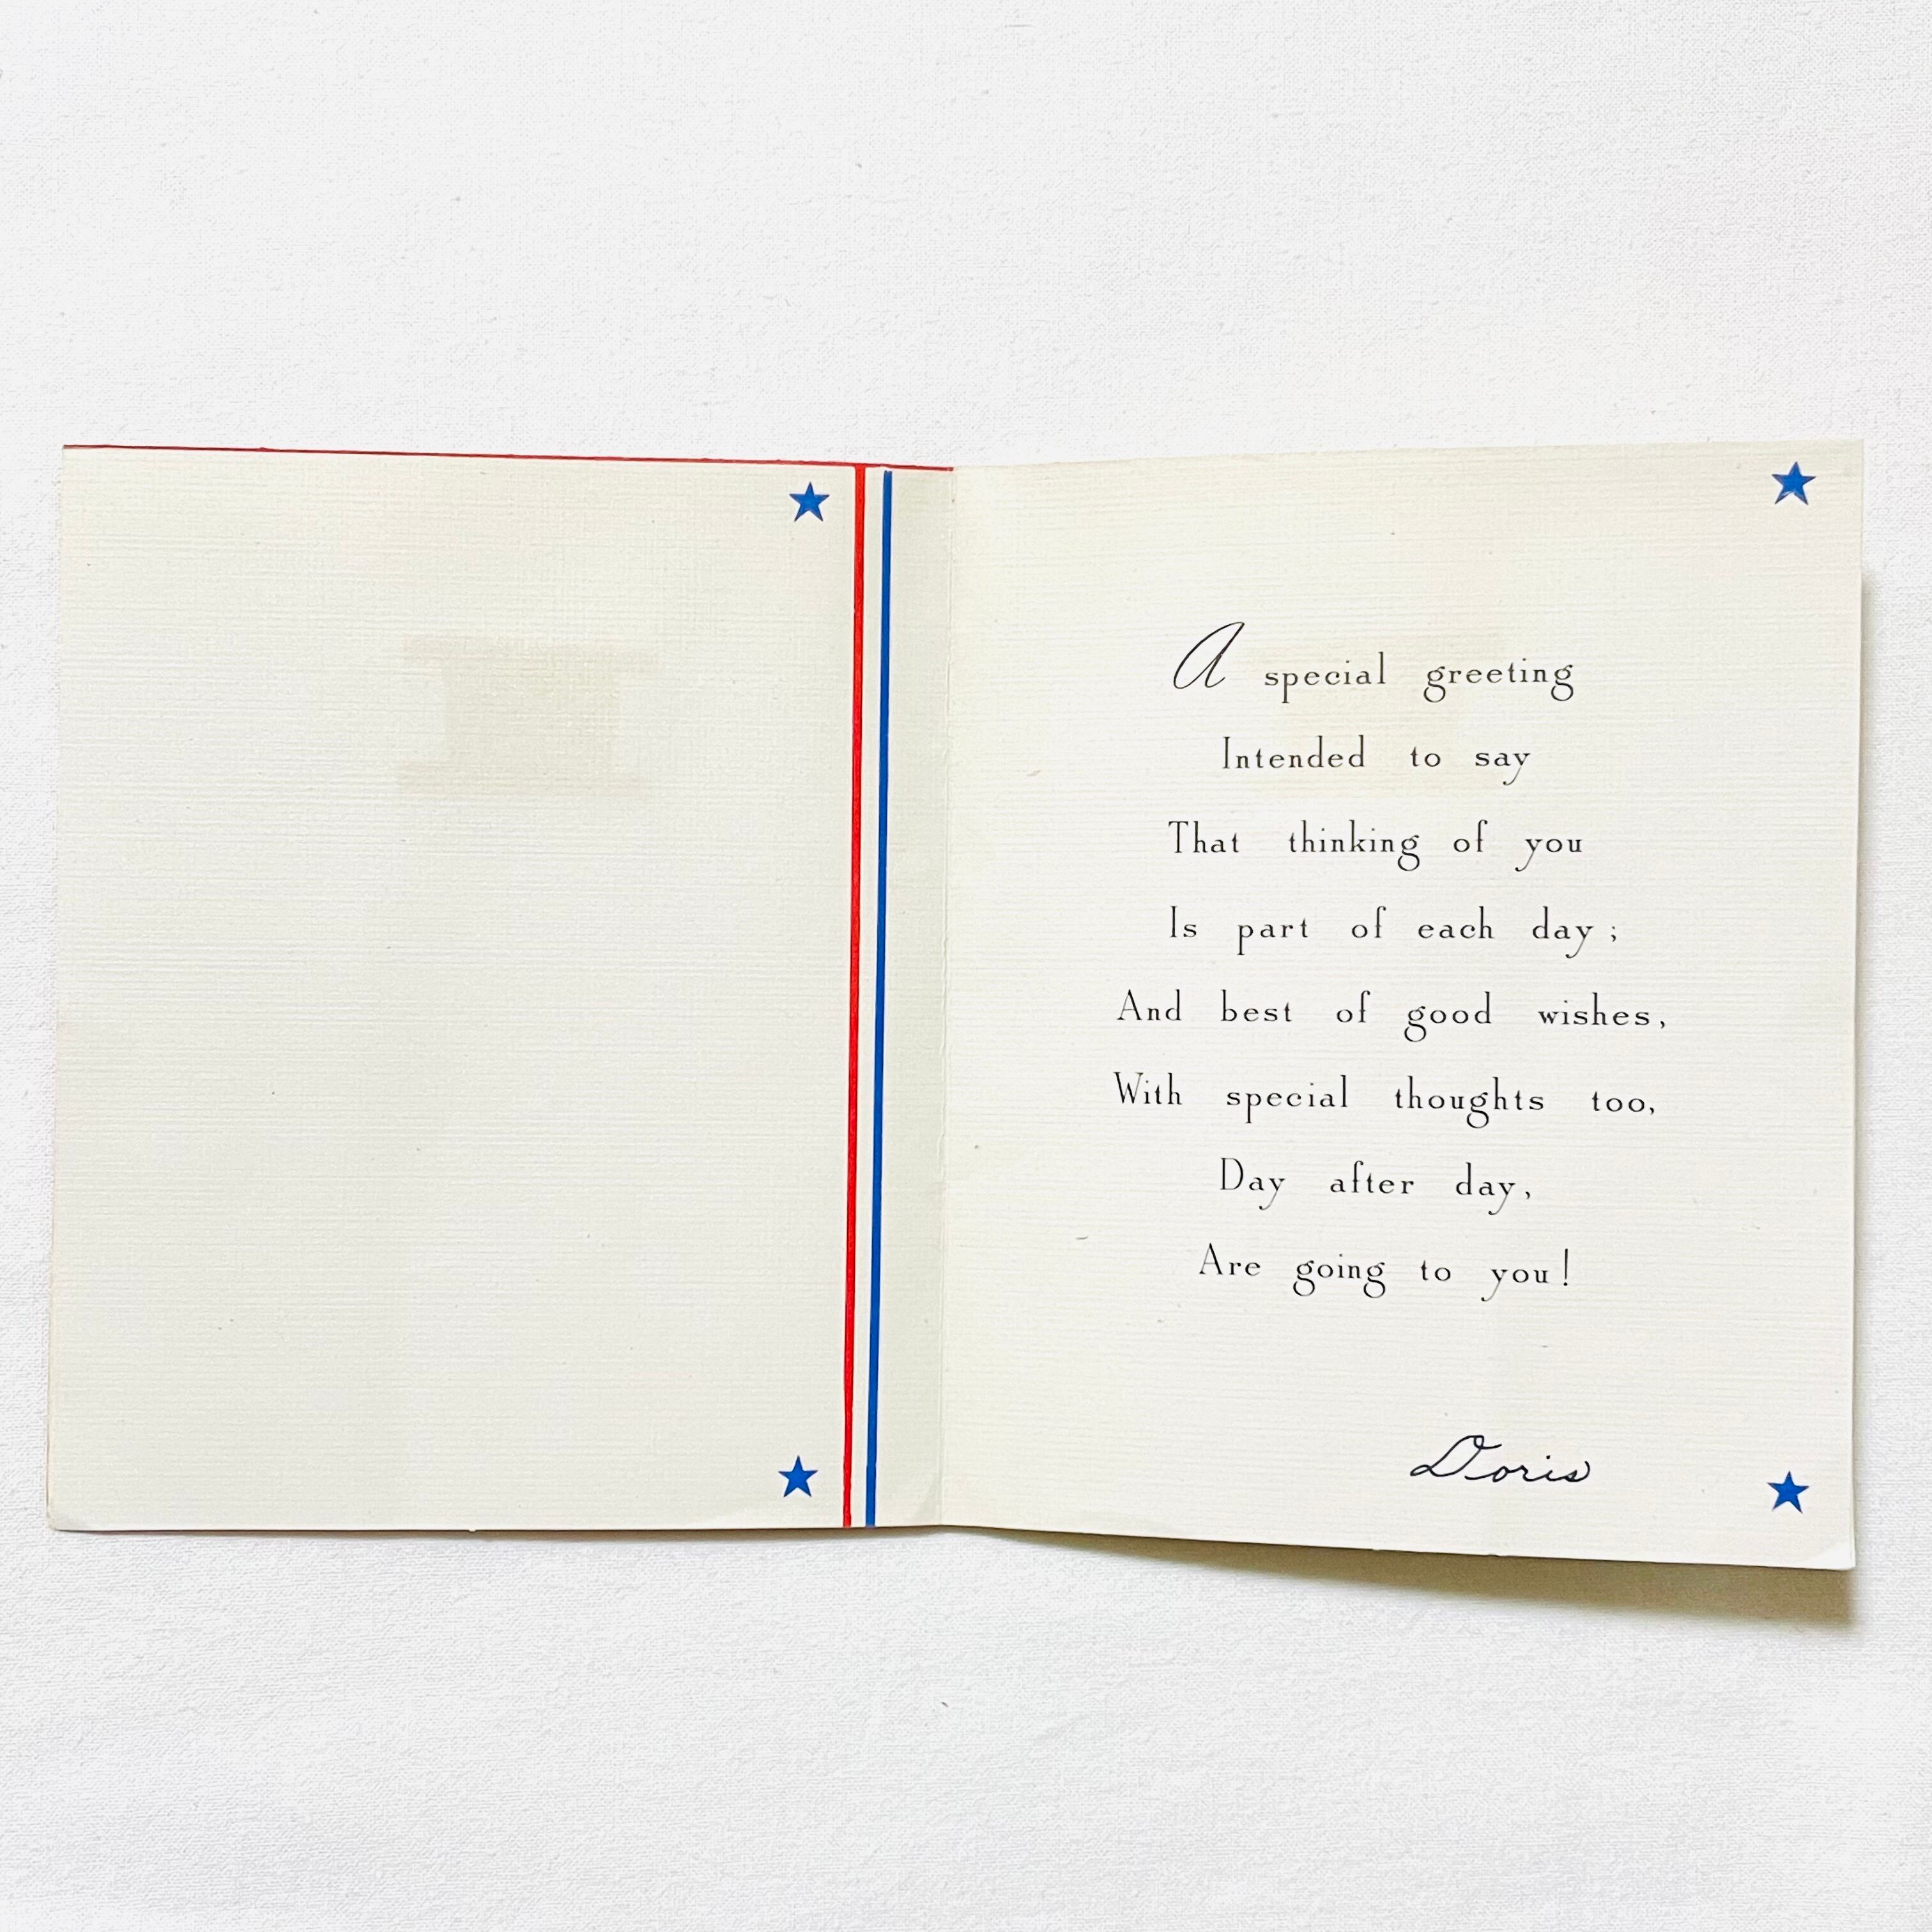 A special greeting
Intended to say
That thinking of you
Is part of each day ;
And best of good wishes,
With special thoughts too,
Day after day,
Are going to you !
Doris